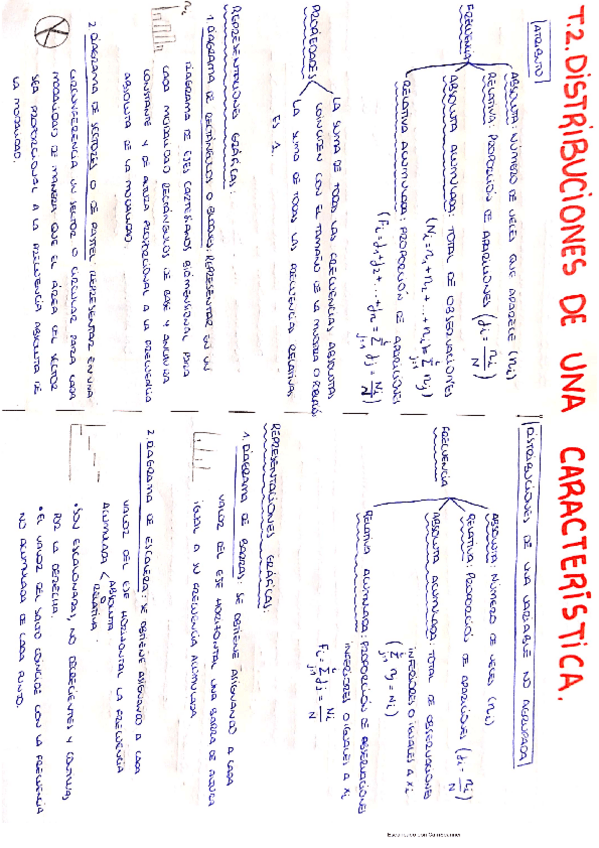 T.2. DISTRIBUCIONES DE UNA CARACTERÍSTICA.
ATRIBUTO
FRECUENCIA
ABSOLUTA: NÚMERO DE VECES QUE APARECE (ni)
RELATIVA: PROPORCIÓN DE APARICIONES (fi = ni/N)
ABSOLUTA ACUMULADA: TOTAL DE OBSERVACIONES
(Ni = n1 + n2 + ... + ni = Σ nj)
RELATIVA ACUMULADA: PROPORCIÓN DE APARICIONES
(Fi = f1 + f2 + ... + fn = Σ fj = Ni/N)
PROPIEDADES
LA SUMA DE TODAS LAS FRECUENCIAS ABSOLUTAS
COINCIDEN CON EL TAMAÑO DE LA MUESTRA O POBLACIÓN
LA SUMA DE TODAS LAS FRECUENCIA RELATIVAS
ES 1.
REPRESENTACIONES GRÁFICAS:
1. DIAGRAMA DE RECTÁNGULOS O BLOQUES: REPRESENTAR EN UN
DIAGRAMA DE EJES CARTESIANOS BIDIMENSIONAL PARA
CADA MODALIDAD RECTÁNGULOS DE BASE Y ANCHURA
CONSTANTE Y DE ALTURA PROPORCIONAL A LA FRECUENCIA
ABSOLUTA DE LA MODALIDAD.
ni
2. DIAGRAMA DE SECTORES O DE PASTEL: REPRESENTAR EN UNA
CIRCUNFERENCIA UN SECTOR O CIRCULAR PARA CADA
MODALIDAD DE MANERA QUE EL ÁREA DEL SECTOR
SEA PROPORCIONAL A LA FRECUENCIA ABSOLUTA DE
LA MODALIDAD.
DISTRIBUCIONES DE UNA VARIABLE NO AGRUPADA
FRECUENCIA
ABSOLUTA: NÚMERO DE VECES (ni)
RELATIVA: PROPORCIÓN DE APARICIONES (fi = ni/N)
ABSOLUTA ACUMULADA: TOTAL DE OBSERVACIONES
INFERIORES O IGUALES A xi
(Σ nj = Ni)
RELATIVA ACUMULADA: PROPORCIÓN DE OBSERVACIONES
INFERIORES O IGUALES A xi
Fi = Σ fj = Ni/N
REPRESENTACIONES GRÁFICAS:
1. DIAGRAMA DE BARRAS: SE OBTIENE ASIGNANDO A CADA
VALOR DEL EJE HORIZONTAL UNA BARRA DE ALTURA
IGUAL A SU FRECUENCIA ACUMULADA
2. DIAGRAMA DE ESCALERA: SE OBTIENE ASIGNANDO A CADA
VALOR DEL EJE HORIZONTAL LA FRECUENCIA
ACUMULADA ABSOLUTA O RELATIVA.
• SON ESCALONADAS, NO DECRECIENTES Y CONTINUAS
POR LA DERECHA.
• EL VALOR DEL SALTO COINCIDE CON LA FRECUENCIA
NO ACUMULADA DE CADA PUNTO.
Escaneado con CamScanner